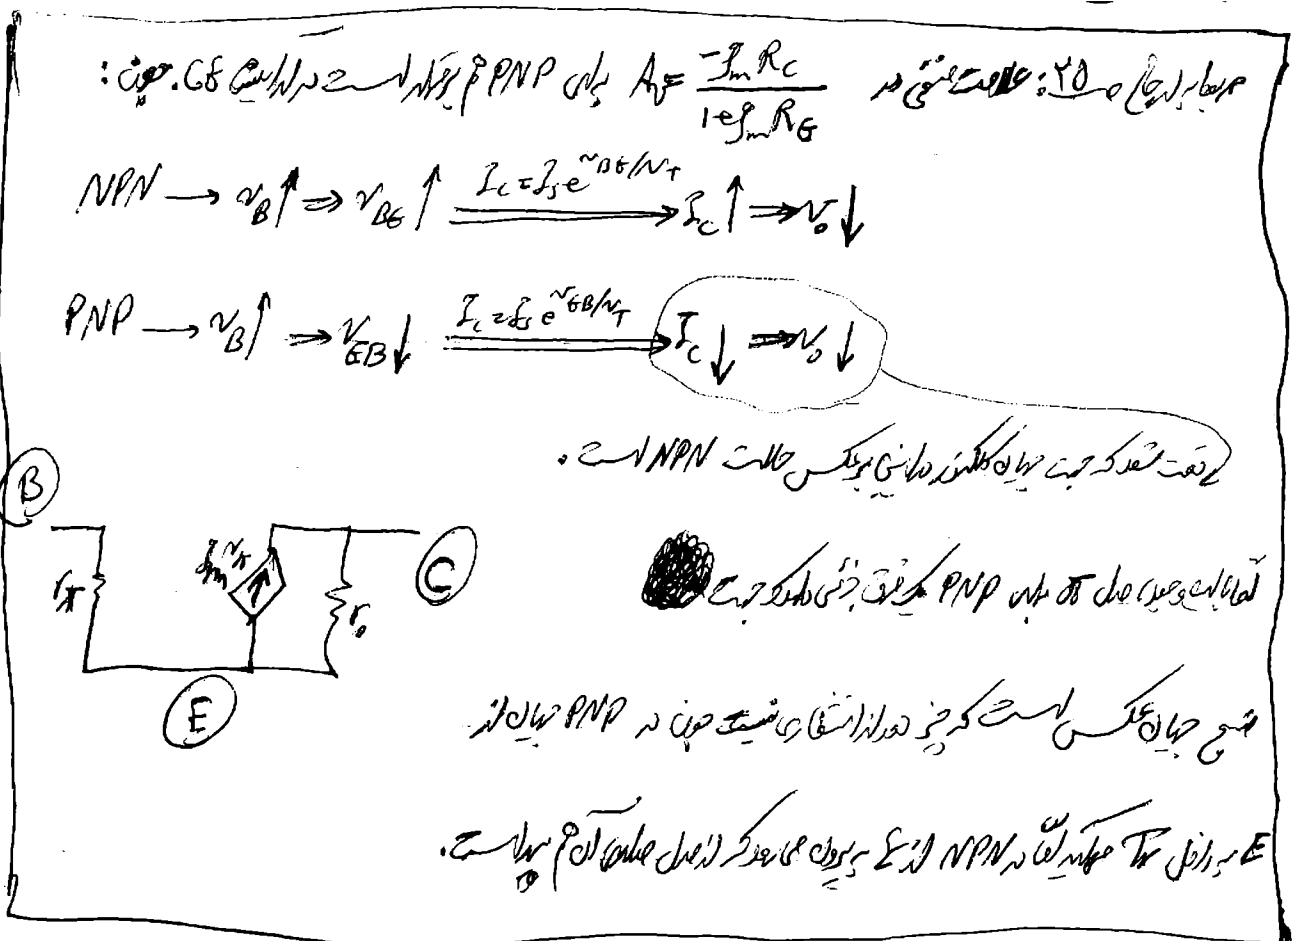 مربوط به ص ۲۵: علامت منفی در A_v = \frac{-g_m R_C}{1+g_m R_E} برای PNP هم برقرار است در آرایش CE. چون:
NPN → v_B ↑ ⇒ v_BE ↑ ⇒ (I_C = I_S e^{v_BE/V_T}) I_C ↑ ⇒ v_o ↓
PNP → v_B ↑ ⇒ v_EB ↓ ⇒ (I_C = I_S e^{v_EB/V_T}) I_C ↓ ⇒ v_o ↓
دقت شود که جهت جریان کلکتور در اینجا برعکس حالت NPN است.
B
g_m v_π
C
r_π
r_o
E
مدل π برای PNP یک فرق جزئی دارد که جهت
منبع جریان عکس است که چیز دور از انتظاری نیست چون در PNP جریان از
E به داخل Tr می‌آید اما در NPN از E بیرون می‌رود که از مدل هم پیداست.